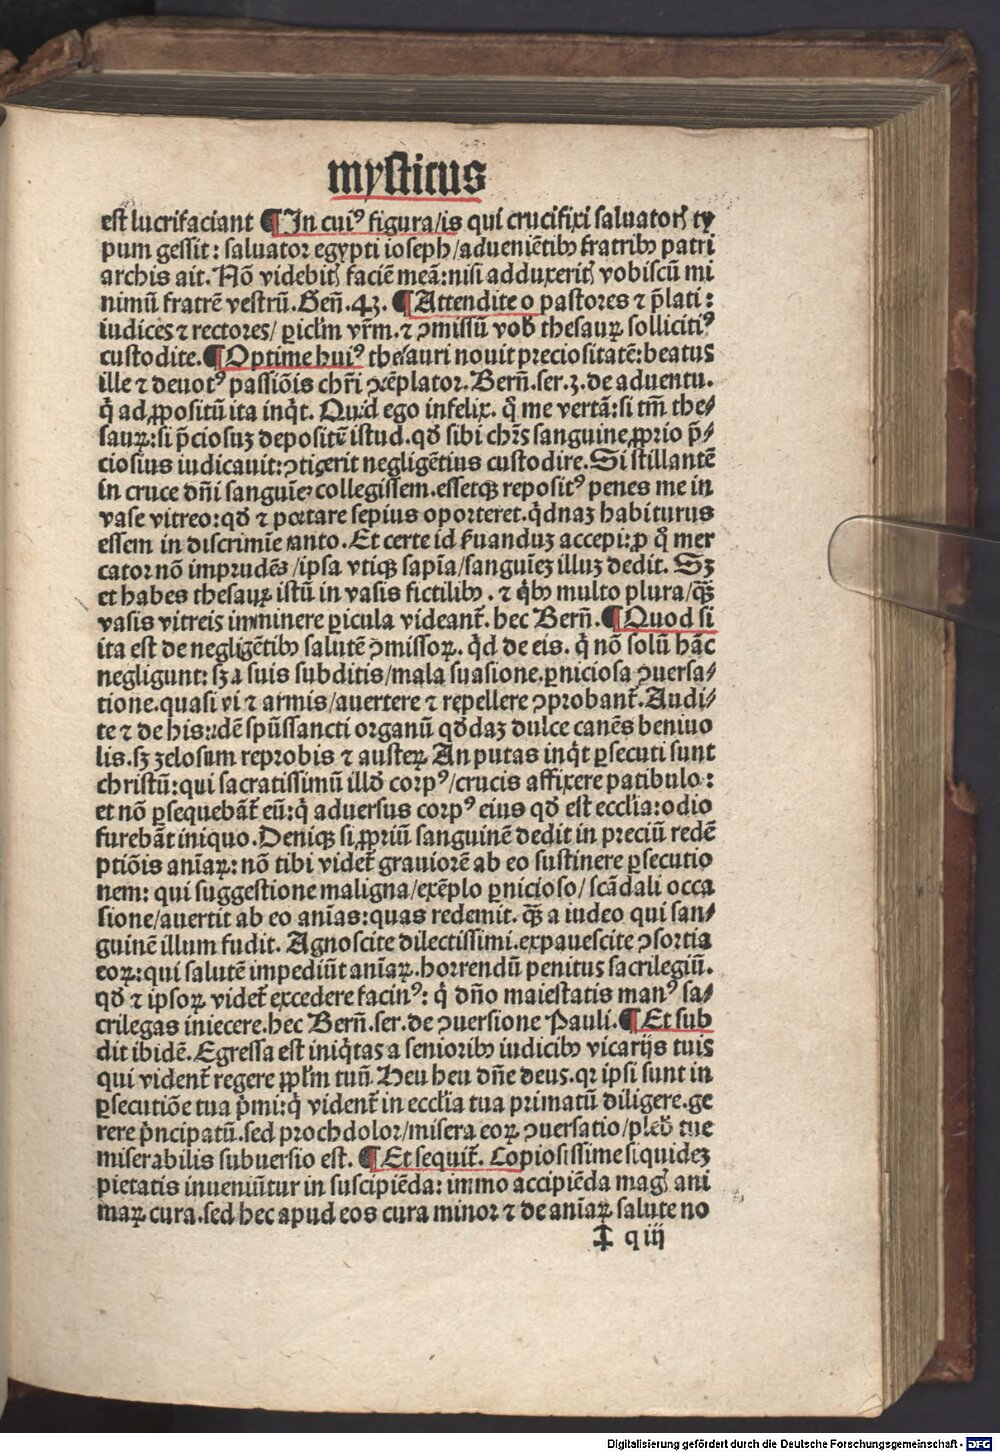 mysticus
est lucrifaciant ¶ In cuiꝰ figura/is qui crucifixi saluatorꝭ ty
pum gessit: saluator egypti ioseph/adueniētibꝫ fratribꝫ patri
archis ait. Nō videbitꝭ faciē meā: nisi adduxeritꝭ vobiscū mi
nimū fratrē vestrū. Geñ. 43. ¶ Attendite o pastores ⁊ p̄lati:
iudices ⁊ rectores/ ꝑiclm̄ vr̄m. ⁊ ꝯmissū vob̄ thesauꝝ sollicitiꝰ
custodite. ¶ Optime huiꝰ thesauri nouit preciositatē: beatus
ille ⁊ deuotꝰ passiōis chr̄i ꝯtēplator. Berñ. ser. 3. de aduentu.
q̇ ad ꝓpositū ita inq̇t. Quid ego infelix. q̊ me vertā: si tm̄ the⸗
sauꝝ: si p̄ciosuꝫ depositū istud. qd̄ sibi chr̄s sanguine ꝓprio p̄⸗
ciosius iudicauit: ꝯtigerit negligētius custodire. Si stillantē
in cruce dn̄i sanguinē collegissem. essetqꝫ repositꝰ penes me in
vase vitreo: qd̄ ⁊ portare sepius oporteret. q̇dnaꝫ habiturus
essem in discrimīe tanto. Et certe id ẜuanduꝫ accepi: ꝓ q̊ mer
cator nō imprudēs/ipsa vtiqꝫ sapīa/sanguīeꝫ illuꝫ dedit. Sꝫ
et habes thesauꝝ istū in vasis fictilibꝫ. ⁊ q̇bꝫ multo plura/qꝫ̄
vasis vitreis imminere ꝑicula videant̄. hec Berñ. ¶ Quod si
ita est de negligētibꝫ salutē ꝯmissoꝝ. q̇d de eis. q̇ nō solū hāc
negligunt: sꝫ a suis subditis/mala suasione. ꝑniciosa ꝯuersa⸗
tione. quasi vi ⁊ armis/auertere ⁊ repellere ꝯprobant̄. Audi⸗
te ⁊ de his: idē spūssancti organū qd̄daꝫ dulce canēs beniuo
lis. sꝫ zelosum reprobis ⁊ austeꝝ. An putas inq̇t ꝑsecuti sunt
christū: qui sacratissimū illd̄ corpꝰ/crucis affixere patibulo:
et nō ꝑsequebāt̄ eū: q̇ aduersus corpꝰ eius qd̄ est eccl̄ia: odio
furebāt iniquo. Deniqꝫ si ꝓpriū sanguinē dedit in preciū redē
ptiōis aniāꝝ: nō tibi videt̄ grauiorē ab eo sustinere ꝑsecutio
nem: qui suggestione maligna/exēplo ꝑnicioso/scādali occa
sione/auertit ab eo anīas: quas redemit. qꝫ̄ a iudeo qui san⸗
guinē illum fudit. Agnoscite dilectissimi. expauescite ꝯsortia
eoꝝ: qui salutē impediūt aniāꝝ. horrendū penitus sacrilegiū.
qd̄ ⁊ ipsoꝝ videt̄ excedere facinꝰ: q̇ dn̄o maiestatis manꝰ sa⸗
crilegas iniecere. hec Berñ. ser. de ꝯuersione Pauli. ¶ Et sub
dit ibidē. Egressa est iniq̇tas a senioribꝫ iudicibꝫ vicarijs tuis
qui vident̄ regere ꝓpl̄m tuū. Heu heu dn̄e deus. qꝛ ipsi sunt in
ꝑsecutiōe tua p̄mi: q̇ vident̄ in eccl̄ia tua primatū diligere. ge
rere p̄ncipatū. sed proch dolor/misera eoꝝ ꝯuersatio/pleb̄ tue
miserabilis subuersio est. ¶ Et sequit̄. Copiosissime siquideꝫ
pietatis inueniūtur in suscipiēda: immo accipiēda magꝭ ani
maꝝ cura. sed hec apud eos cura minor ⁊ de aniāꝝ salute no
‡ q iij
Digitalisierung gefördert durch die Deutsche Forschungsgemeinschaft - DFG